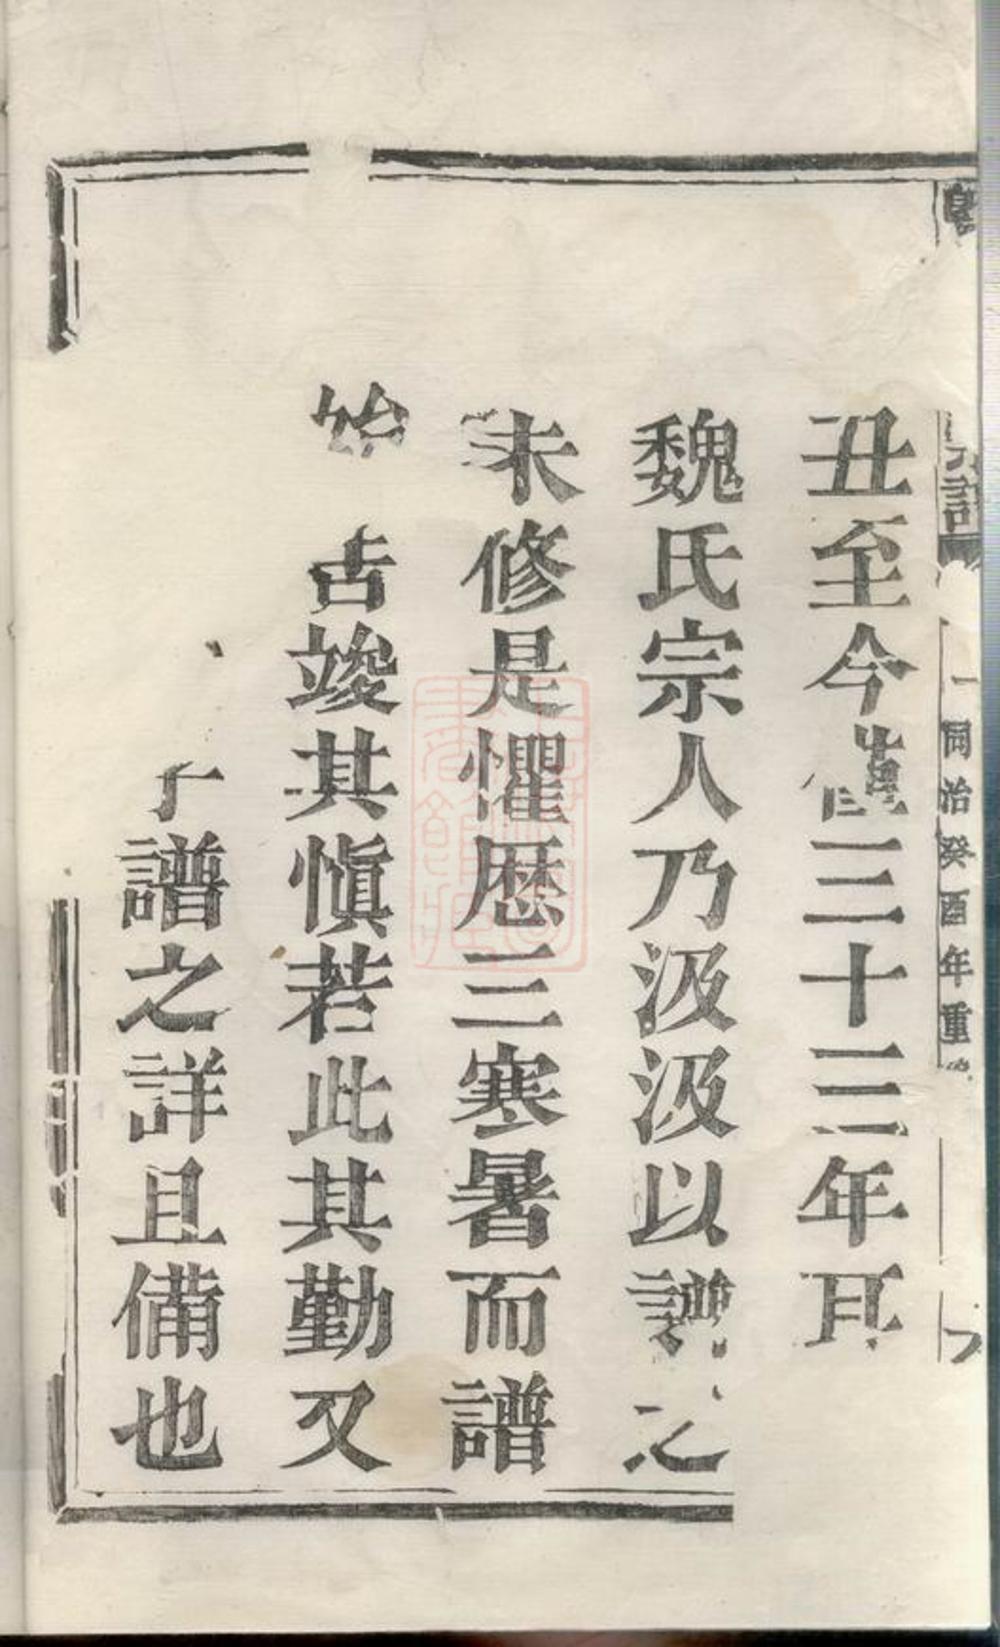 同治癸酉年重
丑至今僅三十三年耳
魏氏宗人乃汲汲以譜之
未修是懼歴三寒暑而譜
始告竣其愼若此其勤又
子譜之詳且備也